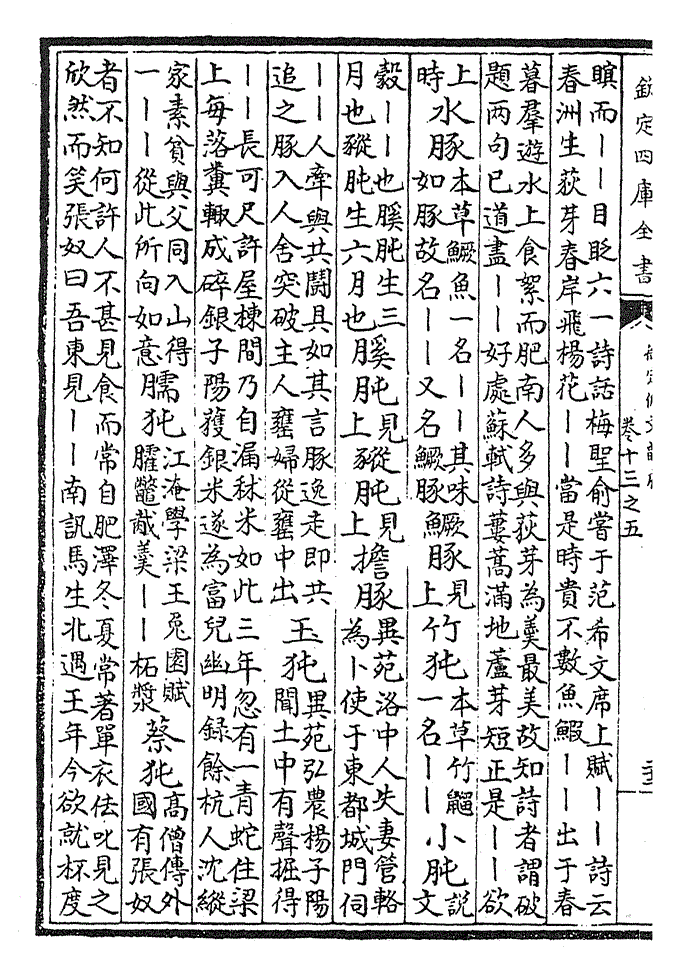 欽定四庫全書
卷十三之五
瞋而丨丨目眨六一詩話梅聖俞嘗于范希文席上賦丨丨詩云
春洲生荻芽春岸飛楊花丨丨當是時貴不數魚鰕丨丨出于春
暮羣遊水上食絮而肥南人多與荻芽為羮最美故知詩者謂破
題两句已道盡丨丨好處蘇軾詩蔞蒿滿地蘆芽短正是丨丨欲
上時 水豚 本草鱖魚一名丨丨其味如豚故名丨丨又名鱖豚 鱖豚 見上 竹㹠 本草竹䶉一名丨丨 小肫 説文
縠丨丨也豯肫生三月也豵肫生六月也 豯肫 見上 豵肫 見上 擔豚 異苑洛中人失妻管輅為卜使于東都城門伺
丨丨人牽與共鬭具如其言豚逸走即共追之豚入人舍突破主人壅婦從壅中出 玉㹠 異苑弘農楊子陽聞土中有聲掘得
丨丨長可尺許屋棟間乃自漏秫米如此三年忽有一青蛇住梁
上每落糞輙成碎銀子陽獲銀米遂為富兒幽明録餘杭人沈縱
家素貧與父同入山得一丨丨從此所向如意 臑㹠 江淹學梁王兎園賦臛鼈胾羮丨丨柘漿 蔡㹠 高僧傳外國有張奴
者不知何許人不甚見食而常自肥澤冬夏常著單衣佉叱見之
欣然而笑張奴曰吾東見丨丨南訊馬生北遇王年今欲就杯度